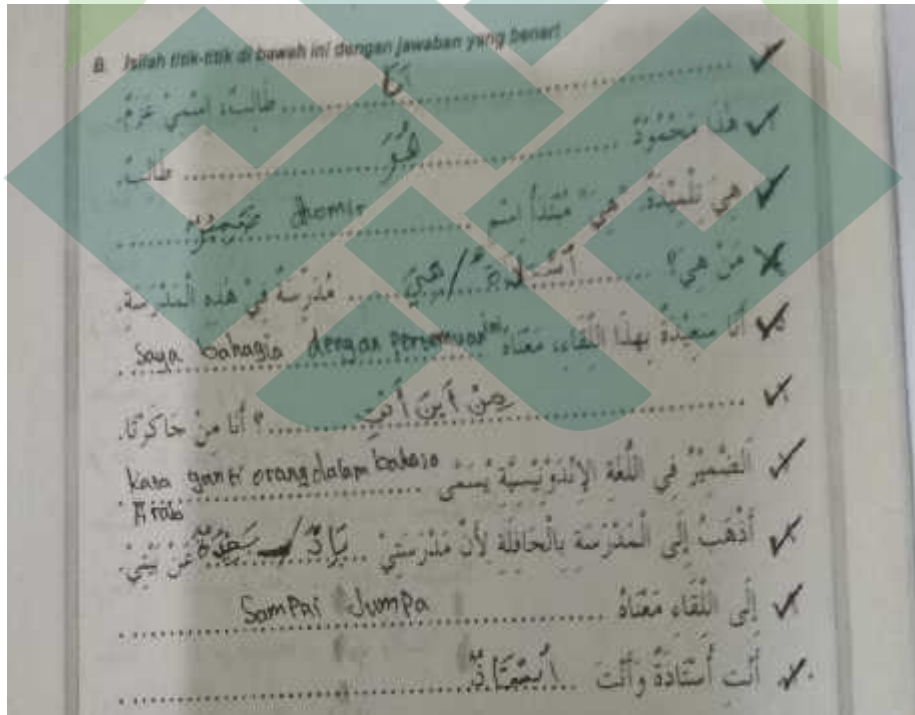 B. Isilah titik-titik di bawah ini dengan jawaban yang benar!
أنا ........ طَالِبٌ، اِسْمِيْ عَزْمٌ.
هَذَا مَحْمُوْدٌ ........ هُوَ ........ طَالِبٌ.
هِيَ تِلْمِيْذَةٌ. "هِيَ" مُبْتَدَأٌ اسْم ........ dhomir
مَنْ هِيَ؟ ........ / هِيَ ........ مُدَرِّسَةٌ فِيْ هَذِهِ الْمَدْرَسَةِ.
أَنَا سَعِيْدَةٌ بِهَذَا اللِّقَاءِ، مَعْنَاهُ
Saya bahagia dengan pertemuan ini
مِنْ أَيْنَ أَنْتِ ........؟ أَنَا مِنْ جَاكَرْتَا.
اَلضَّمِيْرُ فِي اللُّغَةِ الإِنْدُوْنِيْسِيَّةِ يُسَمَّى
Kata ganti orang dalam bahasa
Arab
أَذْهَبُ إِلَى الْمَدْرَسَةِ بِالْحَافِلَةِ لِأَنَّ مَدْرَسَتِيْ ........ عَنْ بَيْتِيْ.
إِلَى اللِّقَاءِ مَعْنَاهُ ........ Sampai Jumpa
أَنْتِ أُسْتَاذَةٌ وَأَنْتَ ........